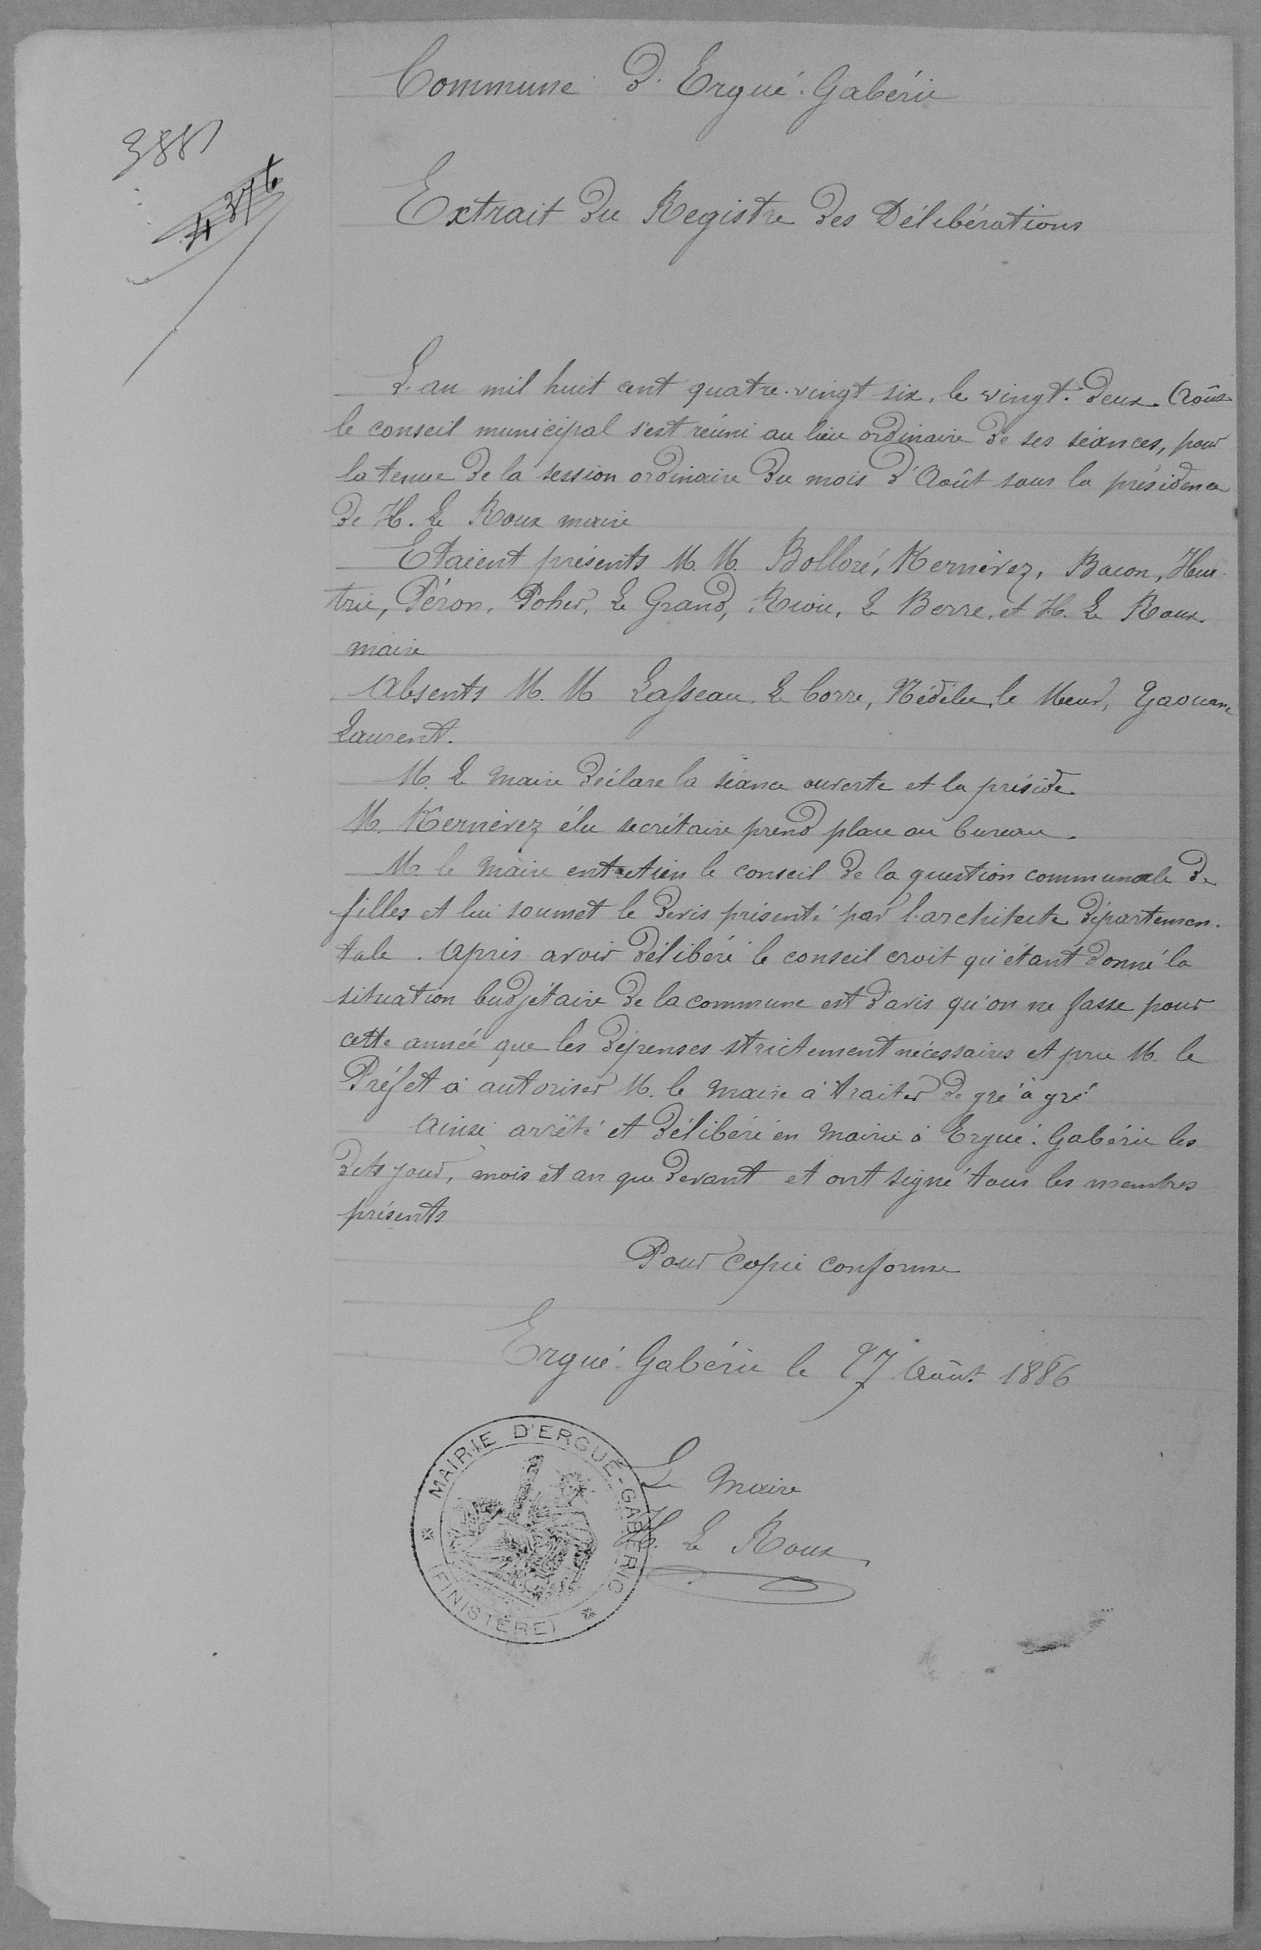 Commune d'Ergué-Gabéric
3881
4376
Extrait du Registre des Délibérations
L'an mil huit cent quatre-vingt six, le vingt-deux Août
le conseil municipal s'est réuni au lieu ordinaire de ses séances, pour
la tenue de la session ordinaire du mois d'Août sous la présidence
de H. Le Roux maire
Etaient présents M. M. Bolloré, Kernévez, Bacon, Heur-
trie, Péron, Poher, Le Grand, Riou, Le Berre, et H. Le Roux.
maire
Absents M. M Lasseau, Le Corre, Nédélec, le Meur, Gaouanc
Laurent.
M. Le Maire déclare la séance ouverte et la préside
M. Kernévez élu secrétaire prend place au bureau.
M. le Maire entretien le conseil de la question communale de
filles et lui soumet le devis présenté par l'architecte départemen-
tale. Après avoir délibéré le conseil croit qu'étant donné la
situation budjétaire de la commune est d'avis qu'on ne fasse pour
cette année que les dépenses strictement nécessaires et prie M. le
Préfet à autoriser M. le Maire à traiter de gré à gré
Ainsi arrêté et délibéré en Mairie à Ergué-Gabéric les
dits jour, mois et an que devant et ont signé tous les membres
présents
Pour copie conforme
Ergué-Gabéric le 27 Août 1886
Le Maire
H. Le Roux
MAIRIE D'ERGUÉ-GABÉRIC
(FINISTÈRE)